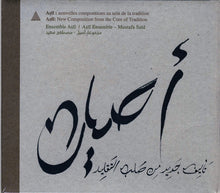 Aṣīl : nouvelles compositions au sein de la tradition
Aṣīl: New Composition from the Core of Tradition
Ensemble Aṣīl / Aṣīl Ensemble - Mustafa Saïd
مجموعة أصيل - مصطفى سعيد
أصيل
تأليف جديد من صلب التقليد